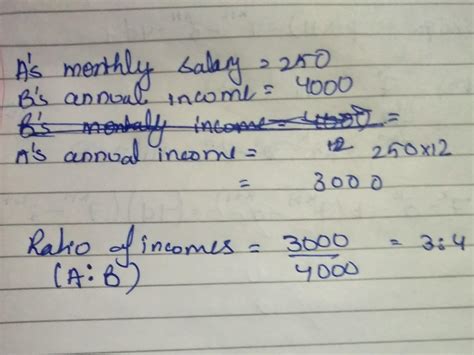 A's monthly salary = 250
B's annual income = 4000
B's montally income = 4000 =
A's annual income = 12 250×12
= 3000
Ratio of incomes = 3000/4000 = 3:4
(A:B)